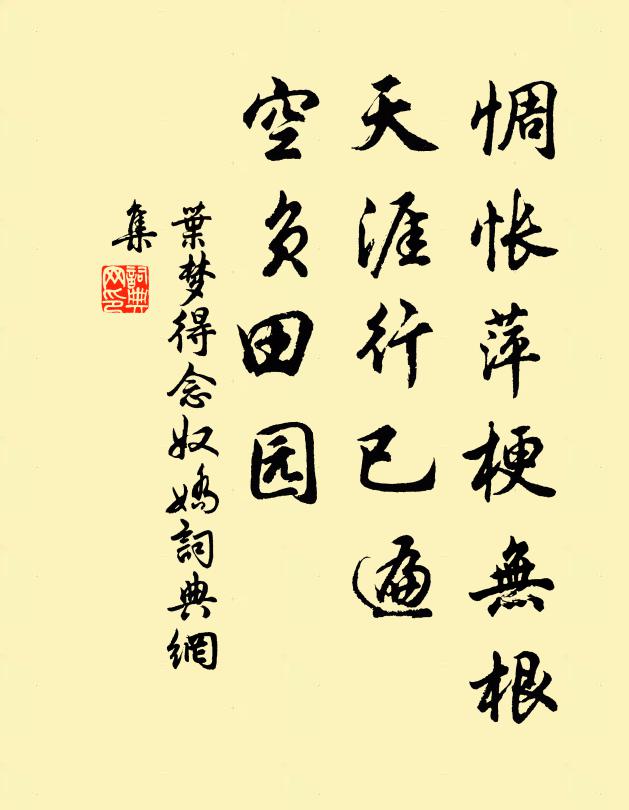 惆怅萍梗無根
天涯行已遍
空负田园
葉梦得念奴嬌詞典網
集
詞典
网印